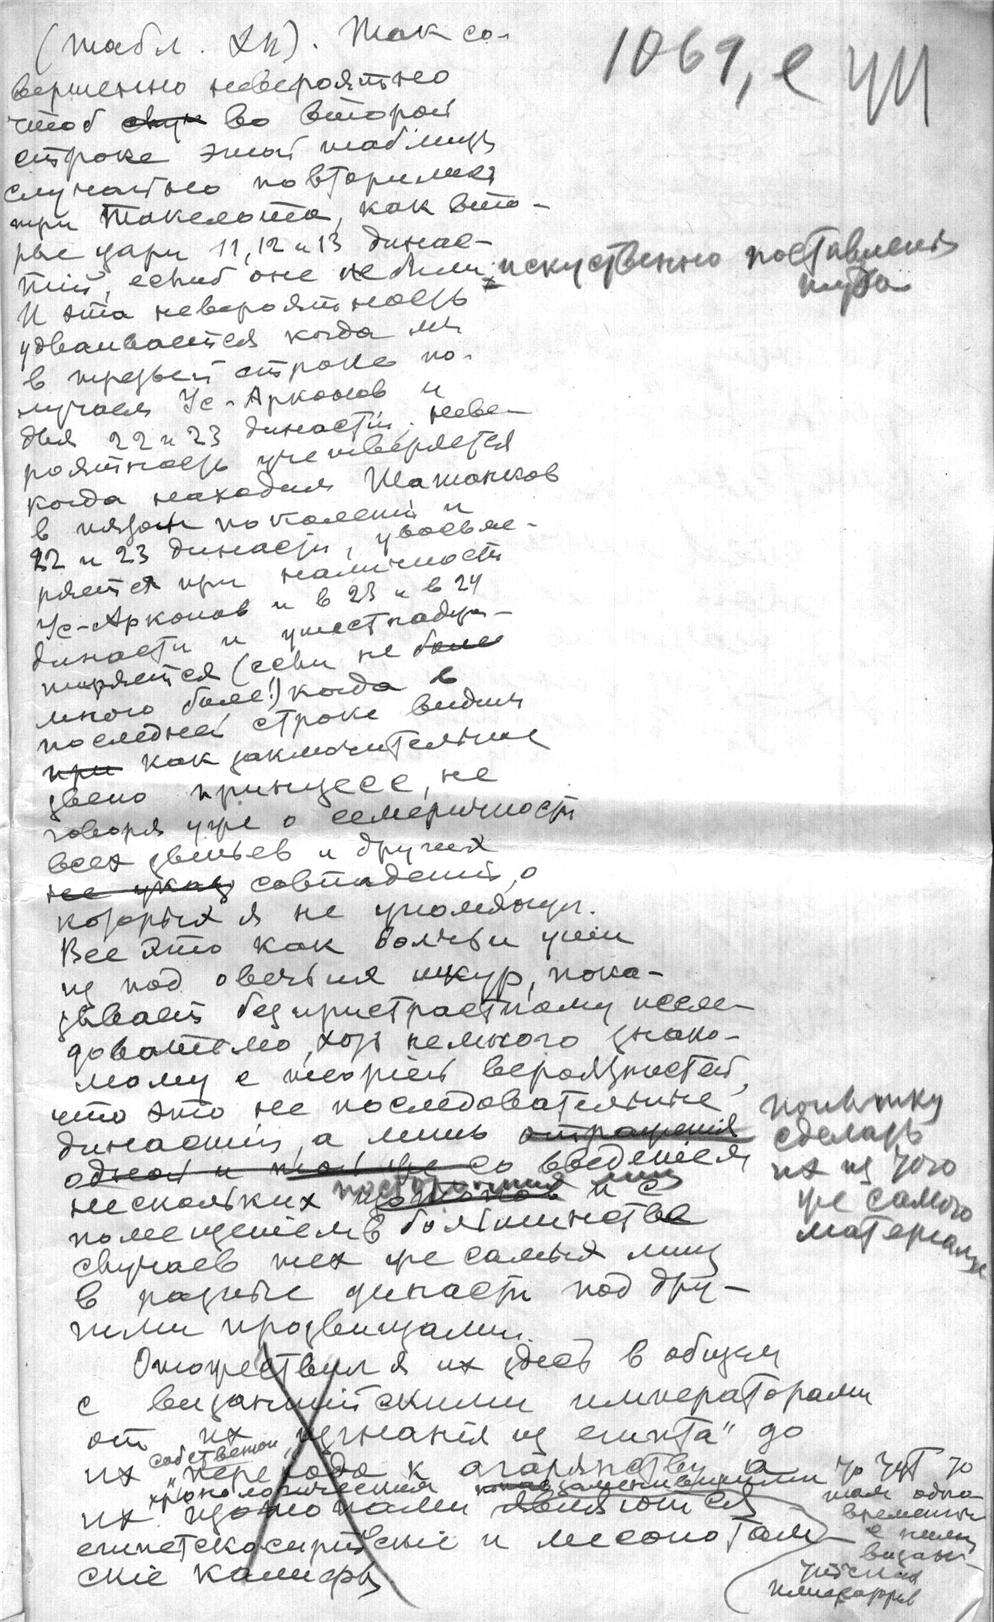 1069, е
(табл. XII). Так со-
вершенно невероятно
чтоб во второй
строке этой таблицы
случайно повторились
три Такелота, как вто-
рые цари 11, 12 и 13 динас-
тий, еслиб оне не были искуственно поставлены
туда
И эта невероятность
удваивается когда мы
в третьей строке по-
лучаем Ус-Арконов и
для 22 и 23 династий, неве-
роятность учетверяется
когда находим Шашонков
в пятом поколении и
22 и 23 династи, увосьме-
ряется при наличности
Ус-Арконов и в 23 и в 24
династи и ушестнадца-
теряется (если не более
много более!) когда в
последней строке видим
при как заключительные
звено принцесс, не
говоря уже о семеричности
всех звеньев и других
не указ совпадений, о
которых я не упомянул.
Все это как волчьи уши
из под овечьих шкур, пока-
зывает безпристрастному иссле-
дователю, хоть немного знако-
мому с теорией вероятностей,
что это не последовательные
династии, а лишь отражения
попытку
сделать
их из того
же самого
материала
одной и той же со введением
нескольких посторонних лиц и с
помещением в большинстве
случаев тех же самых лиц
в разные династи под дру-
гими прозвищами.
Отожествил я их здесь в общем
с византийскими императорами
от их „изгнания из египта" до
их собственного „перехода к агарянству, а
хронологическия заменившими
их являются
египетскосирийские и месопотам-
ские калифы
там одно-
временны
с ними
визан-
тийских
императоров